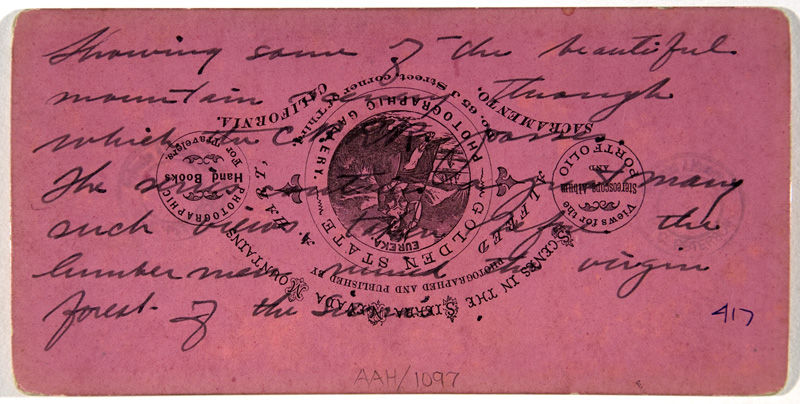 Showing some of the beautiful
mountain scenery through
which the C.P.R.R. passes.
The series contains great many
such views taken before the
lumbermen ruined the virgin
forest of the Sierra's.
417
AAH/1097
SCENES IN THE SIERRA NEVADA MOUNTAINS,
PHOTOGRAPHED AND PUBLISHED BY
ALFRED A. HART,
GOLDEN STATE
PHOTOGRAPHIC GALLERY,
EUREKA
No. 65 J Street, corner of Third,
SACRAMENTO, CALIFORNIA.
Views for the
Stereoscope Album
AND
PORTFOLIO
PHOTOGRAPHIC
Hand Books
For Travelers.